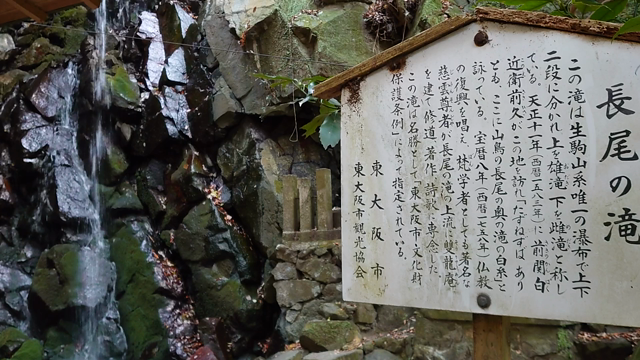 長尾の滝
この滝は生駒山系唯一の瀑布で上下
二段に分かれ上を雄滝、下を雌滝と称し
ている。天正十一年(西暦一五八三年)に前関白
近衛前久がこの地を訪れ「たずねすは あり
とも、ここに山鳥の長尾の奥の滝の白糸」と
詠っている。宝暦八年(西暦一七五八年)仏教
の復興を唱え、梵学者としても著名な
慈雲尊者が長尾の滝の上流に雙龍庵
を建て修道、著作、詩歌に専念した。
この滝は名勝として東大阪市文化財
保護条例によって指定されている。
東大阪市
東大阪市観光協会